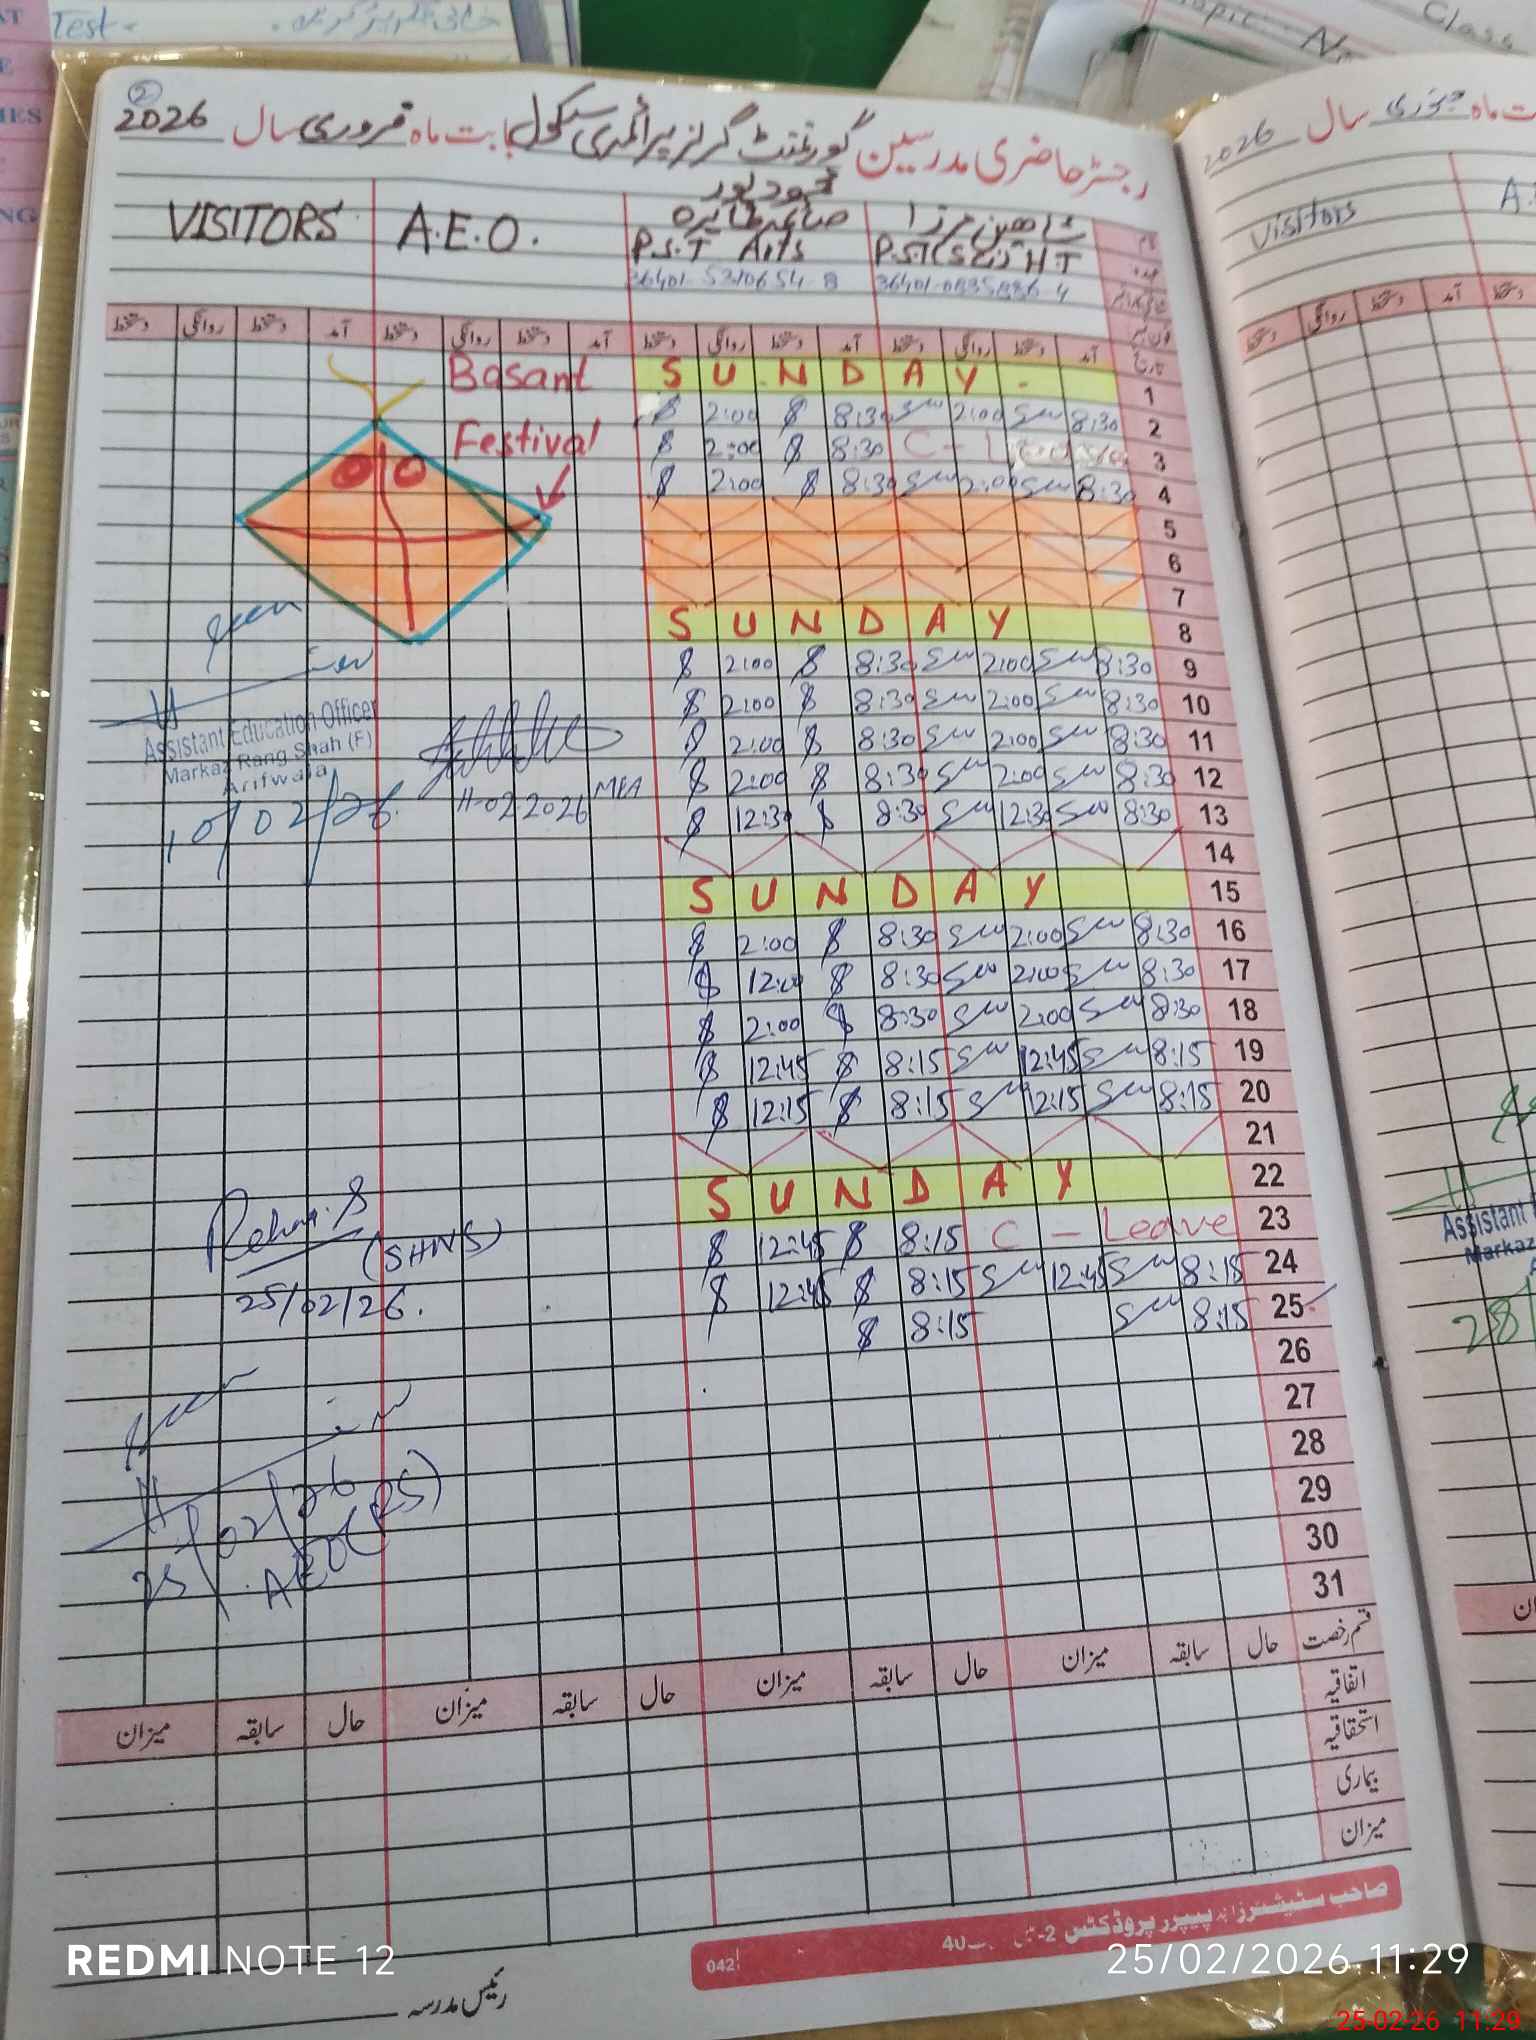 Test -
Class
2
2026 رجسٹر حاضری مدرسین گورنمنٹ گرلز پرائمری سکول بابت ماہ فروری سال
محمود پور
VISITORS A.E.O. صائمہ طاہرہ شاہین مرزا
P.S.T Arts P.S.T (Sci) HT
آمد دستخط روانگی دستخط آمد دستخط روانگی دستخط آمد دستخط روانگی دستخط آمد دستخط روانگی دستخط تاریخ
Basant
Festival
S U N D A Y 1
2:00 8:30 2:00 8:30 2
2:00 8:30 C - L 3
2:00 8:30 2:00 8:30 4
5
6
7
S U N D A Y 8
2:00 8:30 2:00 8:30 9
2:00 8:30 2:00 8:30 10
2:00 8:30 2:00 8:30 11
2:00 8:30 2:00 8:30 12
12:30 8:30 12:30 8:30 13
14
S U N D A Y 15
2:00 8:30 2:00 8:30 16
12:00 8:30 2:00 8:30 17
2:00 8:30 2:00 8:30 18
12:45 8:15 12:45 8:15 19
12:15 8:15 12:15 8:15 20
21
S U N D A Y 22
12:45 8:15 C - Leave 23
12:45 8:15 12:45 8:15 24
8:15 8:15 25
26
27
28
29
30
31
seen
Assistant Education Officer
Markaz Rang Shah (F)
Arifwala
10/02/26
11-02-2026 MEA
(SHNS)
25/02/26.
seen
25/02/26
AEO (RS)
حال سابقہ میزان حال سابقہ میزان حال سابقہ میزان حال سابقہ میزان قسم رخصت
اتفاقیہ
استحقاقیہ
بیماری
میزان
صاحب سٹیشنرز اینڈ پیپر پروڈکٹس
042
رئیس مدرسہ
2026 سال جنوری
Visitors
Assistant
Markaz
28
REDMI NOTE 12
25/02/2026 11:29
25-02-26 11:29